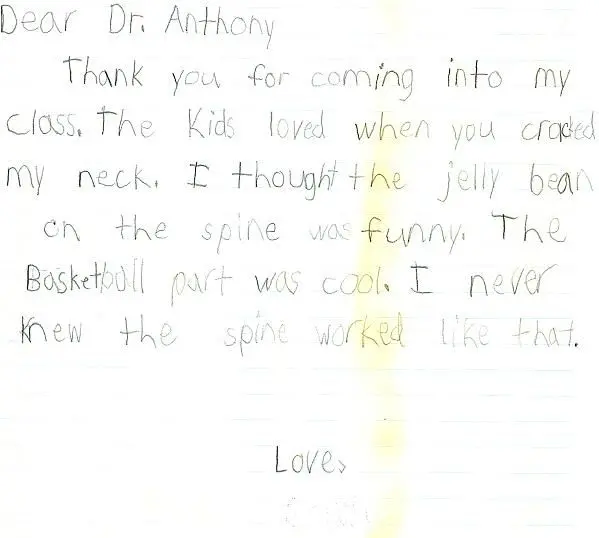 Dear Dr. Anthony
Thank you for coming into my
class. The Kids loved when you cracked
my neck. I thought the jelly bean
on the spine was funny. The
Basketball part was cool. I never
knew the spine worked like that.
Love,